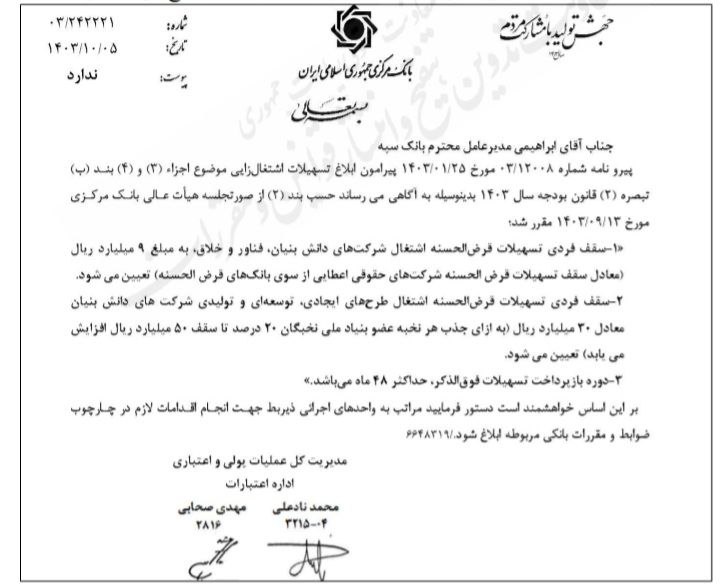 جهش تولید با مشارکت مردم
بانک مرکزی جمهوری اسلامی ایران
بسمه تعالی
شماره: ۰۳/۲۴۲۲۲۱
تاریخ: ۱۴۰۳/۱۰/۰۵
پیوست: ندارد
جناب آقای ابراهیمی مدیرعامل محترم بانک سپه
پیرو نامه شماره ۰۳/۱۲۰۰۸ مورخ ۱۴۰۳/۰۱/۲۵ پیرامون ابلاغ تسهیلات اشتغال‌زایی موضوع اجزاء (۳) و (۴) بند (ب)
تبصره (۲) قانون بودجه سال ۱۴۰۳ بدینوسیله به آگاهی می رساند حسب بند (۲) از صورتجلسه هیأت عالی بانک مرکزی
مورخ ۱۴۰۳/۰۹/۱۳ مقرر شد؛
«۱-سقف فردی تسهیلات قرض‌الحسنه اشتغال شرکت‌های دانش بنیان، فناور و خلاق، به مبلغ ۹ میلیارد ریال
(معادل سقف تسهیلات قرض‌الحسنه شرکت‌های حقوقی اعطایی از سوی بانک‌های قرض الحسنه) تعیین می شود.
۲-سقف فردی تسهیلات قرض‌الحسنه اشتغال طرح‌های ایجادی، توسعه‌ای و تولیدی شرکت های دانش بنیان
معادل ۳۰ میلیارد ریال (به ازای جذب هر نخبه عضو بنیاد ملی نخبگان ۲۰ درصد تا سقف ۵۰ میلیارد ریال افزایش
می یابد) تعیین می شود.
۳-دوره بازپرداخت تسهیلات فوق‌الذکر، حداکثر ۴۸ ماه می‌باشد.»
بر این اساس خواهشمند است دستور فرمایید مراتب به واحدهای اجرائی ذیربط جهت انجام اقدامات لازم در چارچوب
ضوابط و مقررات بانکی مربوطه ابلاغ شود./۶۶۴۸۳۱۹
مدیریت کل عملیات پولی و اعتباری
اداره اعتبارات
محمد نادعلی مهدی صحابی
۳۲۱۵-۰۴ ۲۸۱۶